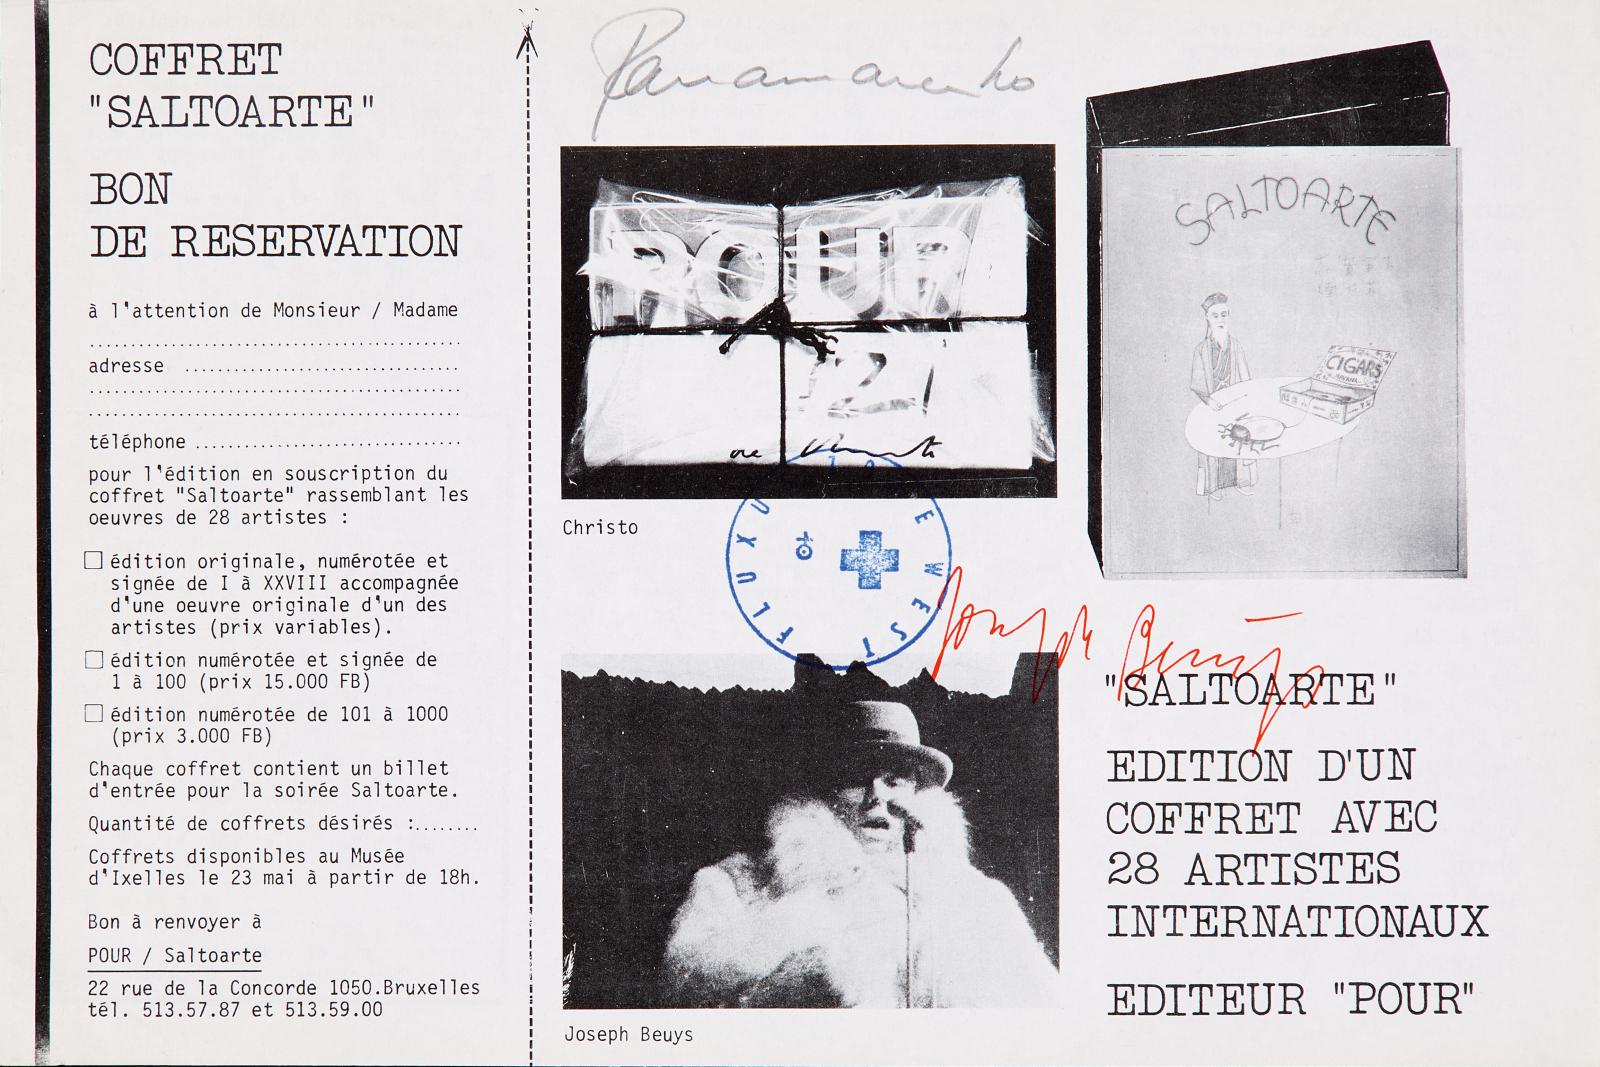 COFFRET
"SALTOARTE"
BON
DE RESERVATION
à l'attention de Monsieur / Madame
adresse
téléphone
pour l'édition en souscription du
coffret "Saltoarte" rassemblant les
oeuvres de 28 artistes :
édition originale, numérotée et
signée de I à XXVIII accompagnée
d'une oeuvre originale d'un des
artistes (prix variables).
édition numérotée et signée de
1 à 100 (prix 15.000 FB)
édition numérotée de 101 à 1000
(prix 3.000 FB)
Chaque coffret contient un billet
d'entrée pour la soirée Saltoarte.
Quantité de coffrets désirés :........
Coffrets disponibles au Musée
d'Ixelles le 23 mai à partir de 18h.
Bon à renvoyer à
POUR / Saltoarte
22 rue de la Concorde 1050.Bruxelles
tél. 513.57.87 et 513.59.00
Panamarenko
POUR
Christo
FLUXUS ZONE WEST
Joseph Beuys
Joseph Beuys
SALTOARTE
CIGARS
HAVANA
"SALTOARTE"
EDITION D'UN
COFFRET AVEC
28 ARTISTES
INTERNATIONAUX
EDITEUR "POUR"